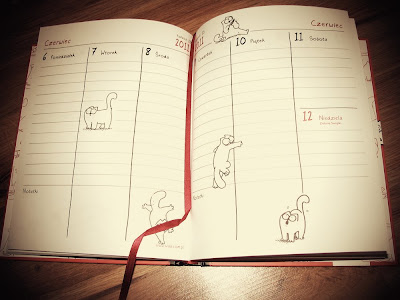 Czerwiec
6 Poniedziałek
7 Wtorek
8 Środa
2011
Notatki
Czerwiec
Czwartek
10 Piątek
11 Sobota
12 Niedziela
Notatki